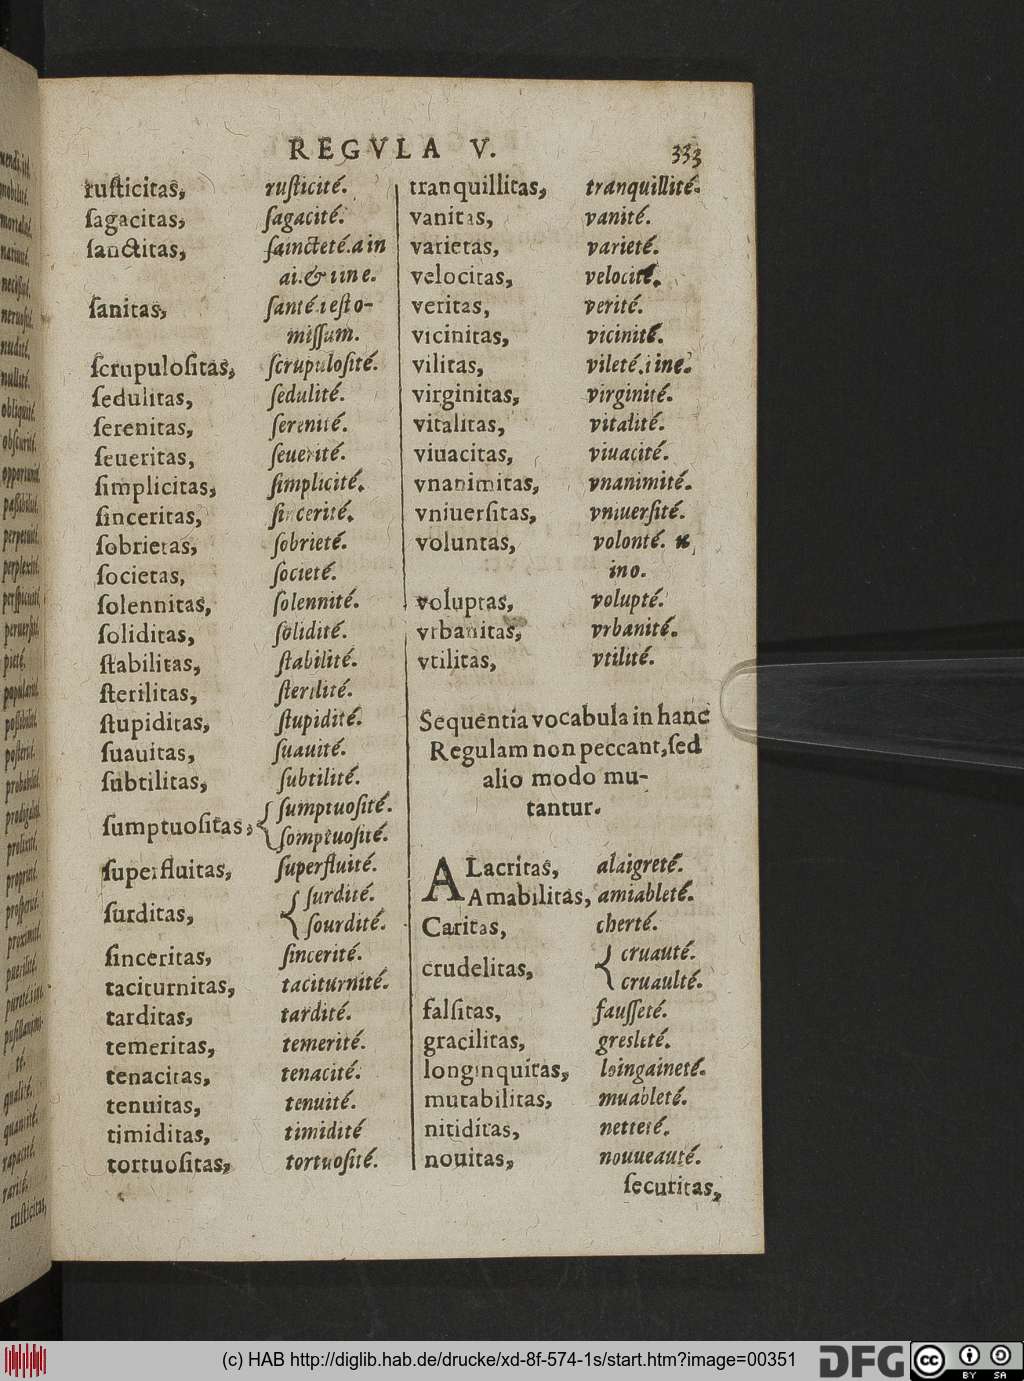 REGVLA V. 333
ruſticitas, ruſticité.
ſagacitas, ſagacité.
ſanctitas, ſaincteté. a in
ai. & i in e.
ſanitas, ſanté. i eſt o-
miſſum.
ſcrupuloſitas, ſcrupuloſité.
ſedulitas, ſedulité.
ſerenitas, ſerenité.
ſeueritas, ſeuerité.
ſimplicitas, ſimplicité.
ſinceritas, ſincerité.
ſobrietas, ſobrieté.
ſocietas, ſocieté.
ſolennitas, ſolennité.
ſoliditas, ſolidité.
ſtabilitas, ſtabilité.
ſterilitas, ſterilité.
ſtupiditas, ſtupidité.
ſuauitas, ſuauité.
ſubtilitas, ſubtilité.
ſumptuoſitas, ſumptuoſité.
ſomptuoſité.
ſuperfluitas, ſuperfluité.
ſurditas, ſurdité.
ſourdité.
ſinceritas, ſincerité.
taciturnitas, taciturnité.
tarditas, tardité.
temeritas, temerité.
tenacitas, tenacité.
tenuitas, tenuité.
timiditas, timidité
tortuoſitas, tortuoſité.
tranquillitas, tranquillité.
vanitas, vanité.
varietas, varieté.
velocitas, velocité.
veritas, verité.
vicinitas, vicinité.
vilitas, vileté. i in e.
virginitas, virginité.
vitalitas, vitalité.
viuacitas, viuacité.
vnanimitas, vnanimité.
vniuerſitas, vniuerſité.
voluntas, volonté. u,
in o.
voluptas, volupté.
vrbanitas, vrbanité.
vtilitas, vtilité.
Sequentia vocabula in hanc
Regulam non peccant, ſed
alio modo mu-
tantur.
ALacritas, alaigreté.
Amabilitas, amiableté.
Caritas, cherté.
crudelitas, cruauté.
cruaulté.
falſitas, fauſſeté.
gracilitas, greſleté.
longinquitas, loingaineté.
mutabilitas, muableté.
nitiditas, netteté.
nouitas, nouueauté.
ſecuritas,
(c) HAB http://diglib.hab.de/drucke/xd-8f-574-1s/start.htm?image=00351
HAB
DFG
cc BY SA